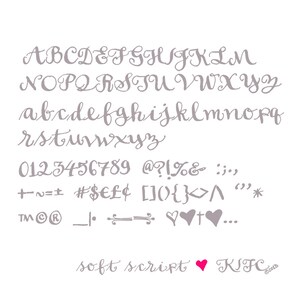 ABCDEFGHIJKLM
NOPQRSTUVWXYZ
abcdefghijklmnopq
rstuvwxyz
0123456789 @?!%& :;.,
+~=± #$€£¢ []()‹›{}<>/\ “”*
™©® _|·
soft script ♥ KIFC